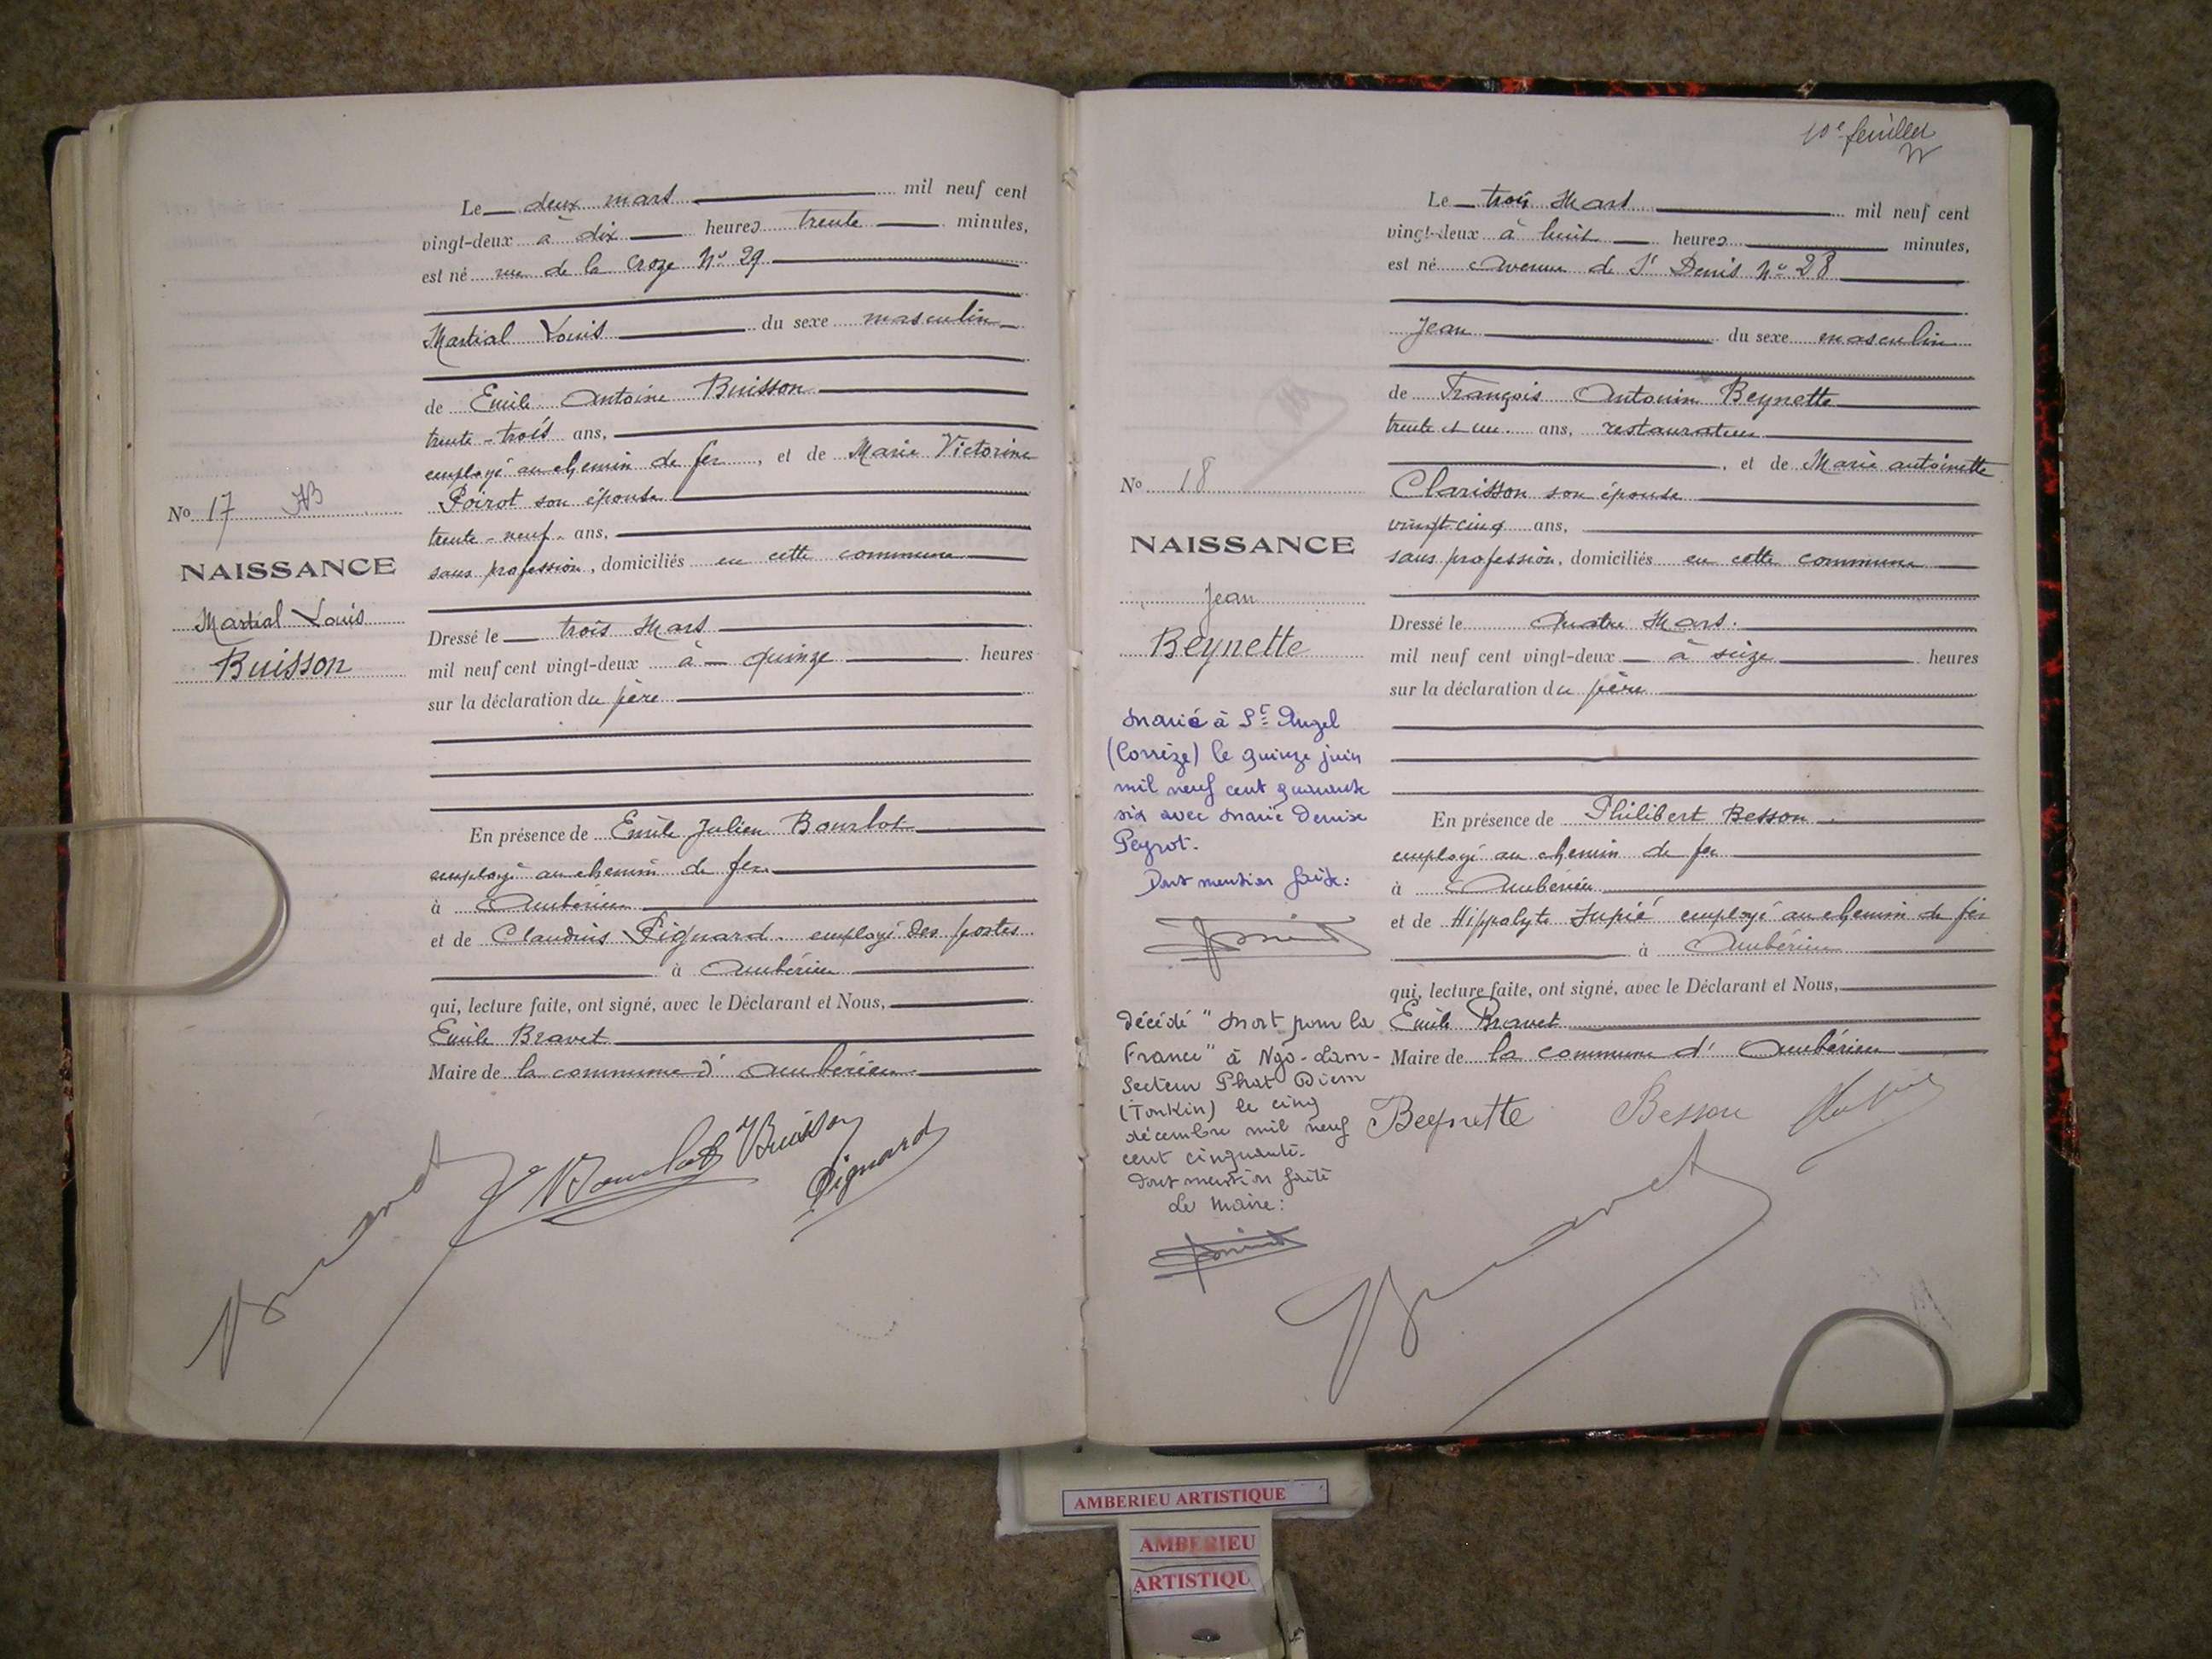 Le deux mars mil neuf cent
vingt-deux à dix heures trente minutes,
est né rue de la Croze No 29
Martial Louis du sexe masculin
de Emile Antoine Buisson
trente-trois ans,
employé au chemin de fer, et de Marie Victorine
Poirot son épouse
trente-neuf ans,
sans profession, domiciliés en cette commune
No 17
NAISSANCE
Martial Louis
Buisson
Dressé le trois Mars
mil neuf cent vingt-deux à quinze heures
sur la déclaration du père
En présence de Emile Julien Bourlot
employé au chemin de fer
à Ambérieu
et de Claudius Pignard employé des postes
à Ambérieu
qui, lecture faite, ont signé, avec le Déclarant et Nous,
Emile Bravet
Maire de la commune d'Ambérieu
Bravet
Bourlot
Buisson
Pignard
10e feuillet
Le trois Mars mil neuf cent
vingt-deux à huit heures minutes,
est né Avenue de St Denis No 28
Jean du sexe masculin
de François Antonin Beynette
trente et un ans, restaurateur
, et de Marie antoinette
Clarisson son épouse
vingt cinq ans,
sans profession, domiciliés en cette commune
No 18
NAISSANCE
Jean
Beynette
Dressé le quatre Mars.
mil neuf cent vingt-deux à seize heures
sur la déclaration du père
Marié à St Angel
(Corrèze) le quinze juin
mil neuf cent quarante
six avec Marie Denise
Peyrot.
Dont mention faite:
En présence de Philibert Besson
employé au chemin de fer
à Ambérieu
et de Hippolyte Jupié employé au chemin de fer
à Ambérieu
qui, lecture faite, ont signé, avec le Déclarant et Nous,
Emile Bravet
Maire de la commune d'Ambérieu
Décédé "Mort pour la
France" à Ngô-Lam-
Secteur Phat Diem
(Tonkin) le cinq
décembre mil neuf
cent cinquante.
Dont mention faite
Le Maire:
Beynette Besson
Bravet
AMBERIEU ARTISTIQUE
AMBERIEU
ARTISTIQU